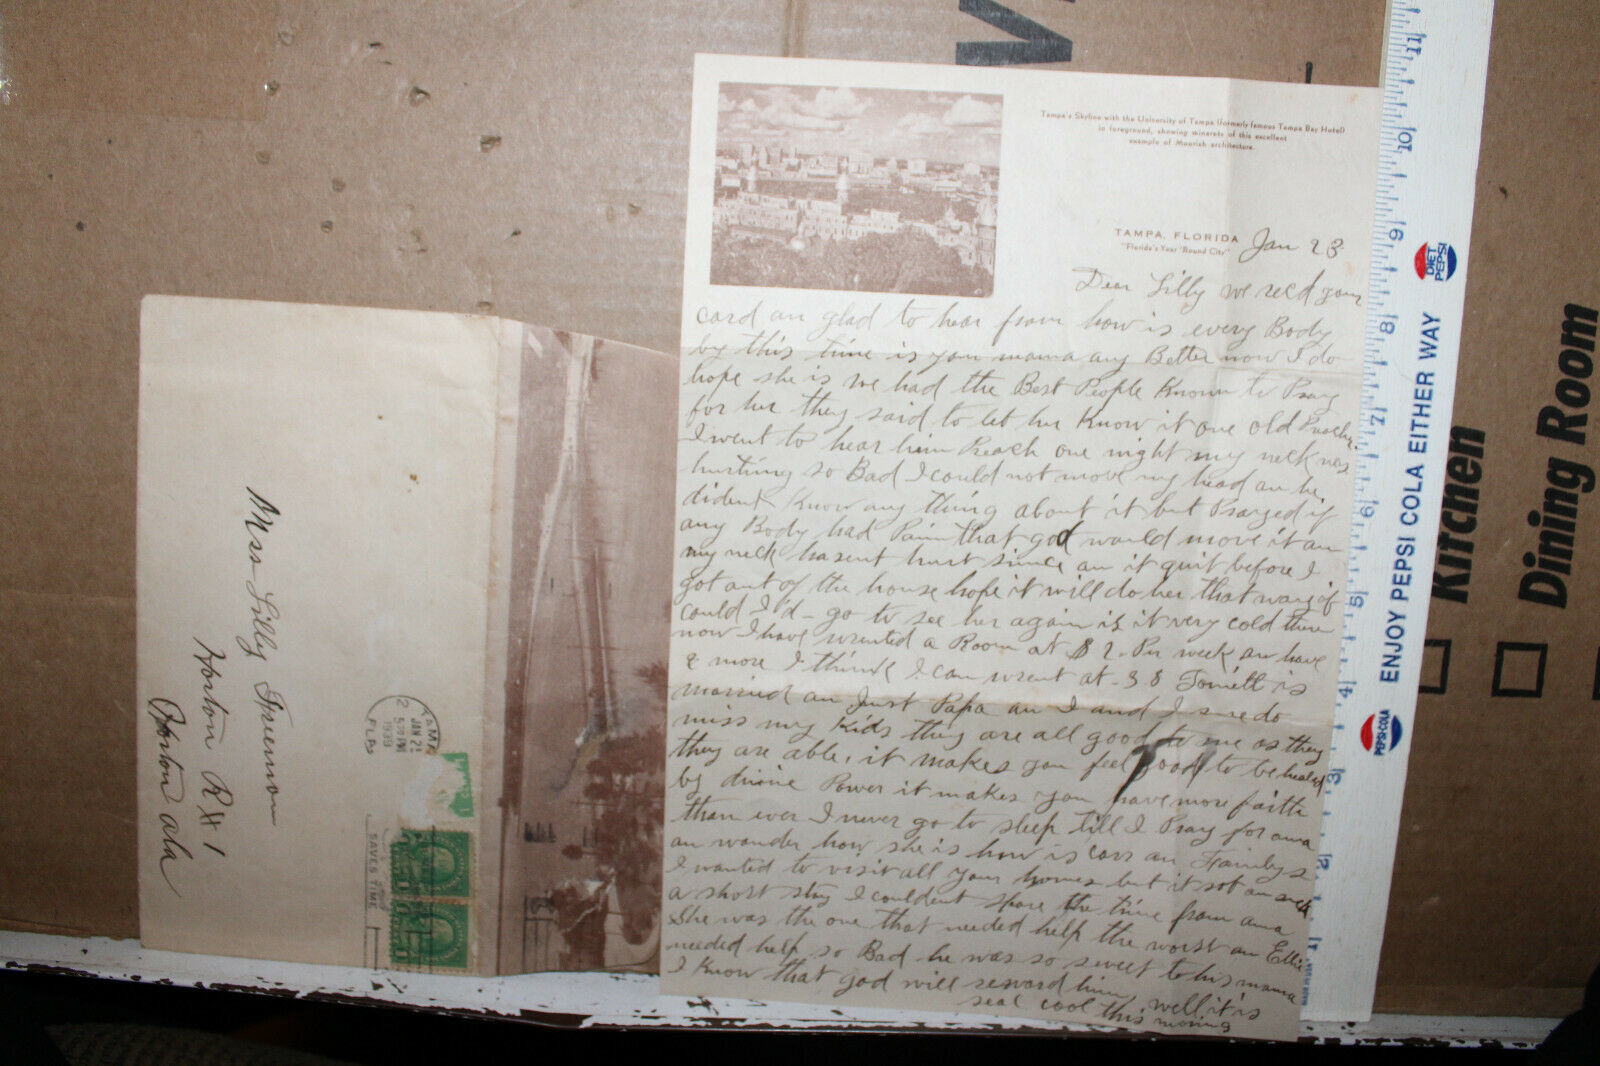 Tampa's Skyline with the University of Tampa (formerly famous Tampa Bay Hotel)
in foreground, showing minarets of this excellent
example of Moorish architecture.
TAMPA, FLORIDA
"Florida's Year 'Round City"
Jan 23
Dear Lilly we recd your
card an glad to hear from how is every Body
by this time is your mama any Better now I do
hope she is we had the Best People Known to Pray
for her they said to let her Know it one old Preacher
I went to hear him Preach one night my neck was
hurting so Bad I could not move my head an he
dident Know any thing about it but Prayed if
any Body had Pain that god would move it an
my neck hasent hurt since an it quit before I
got out of the house hope it will do her that way if
could I'd go to see her again is it very cold there
now I have wrented a Room at $2 Per week an have
2 more I think I can wrent at 3 is
married an Just Papa an I and I sure do
miss my Kids they are all good to me as they
they are able, it makes you feel good to be healed
by divine Power it makes you have more faith
than ever I never go to sleep till I Pray for anna
an wonder how she is how is an Familys
I wanted to visit all your homes but it not an such
a short stay I couldent spare the time from anna
She was the one that needed help the worst an Ellie
needed help so Bad he was so sweet to his mama
I Know that god will reward him well it is
real cool this morning
Miss Lilly Freeman
Horton Rt 1
Horton Ala
TAMPA
JAN 23
5 PM
1939
FLA.
SAVES TIME
ENJOY PEPSI COLA EITHER WAY
DIET PEPSI
PEPSI-COLA
MADE IN USA
1
2
3
4
5
6
7
8
9
10
11
Kitchen
Dining Room